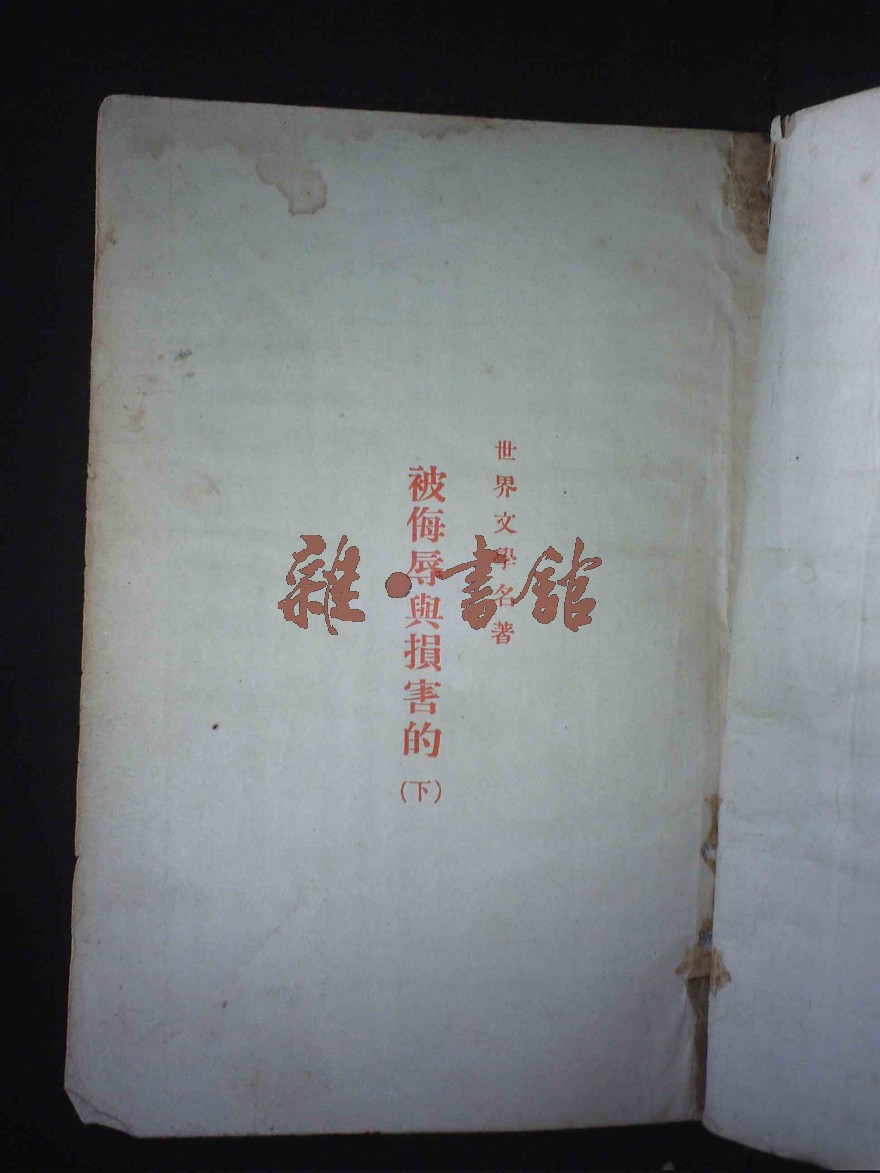 世界文學名著
被侮辱與損害的
(下)
雜·書館